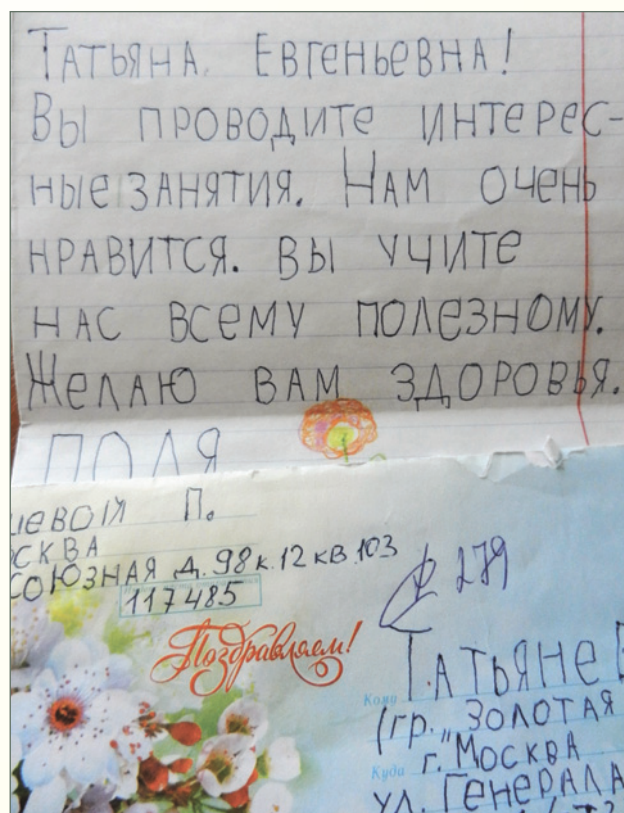 Татьяна Евгеньевна!
Вы проводите интерес-
ные занятия. Нам очень
нравится. Вы учите
нас всему полезному.
Желаю вам здоровья.
Поля
П.
СОЮЗНАЯ Д. 98 к. 12 кв. 103
117485
Поздравляем!
279
Кому ТАТЬЯНЕ
(гр. „ЗОЛОТАЯ
Куда г. МОСКВА
ул. ГЕНЕРАЛА